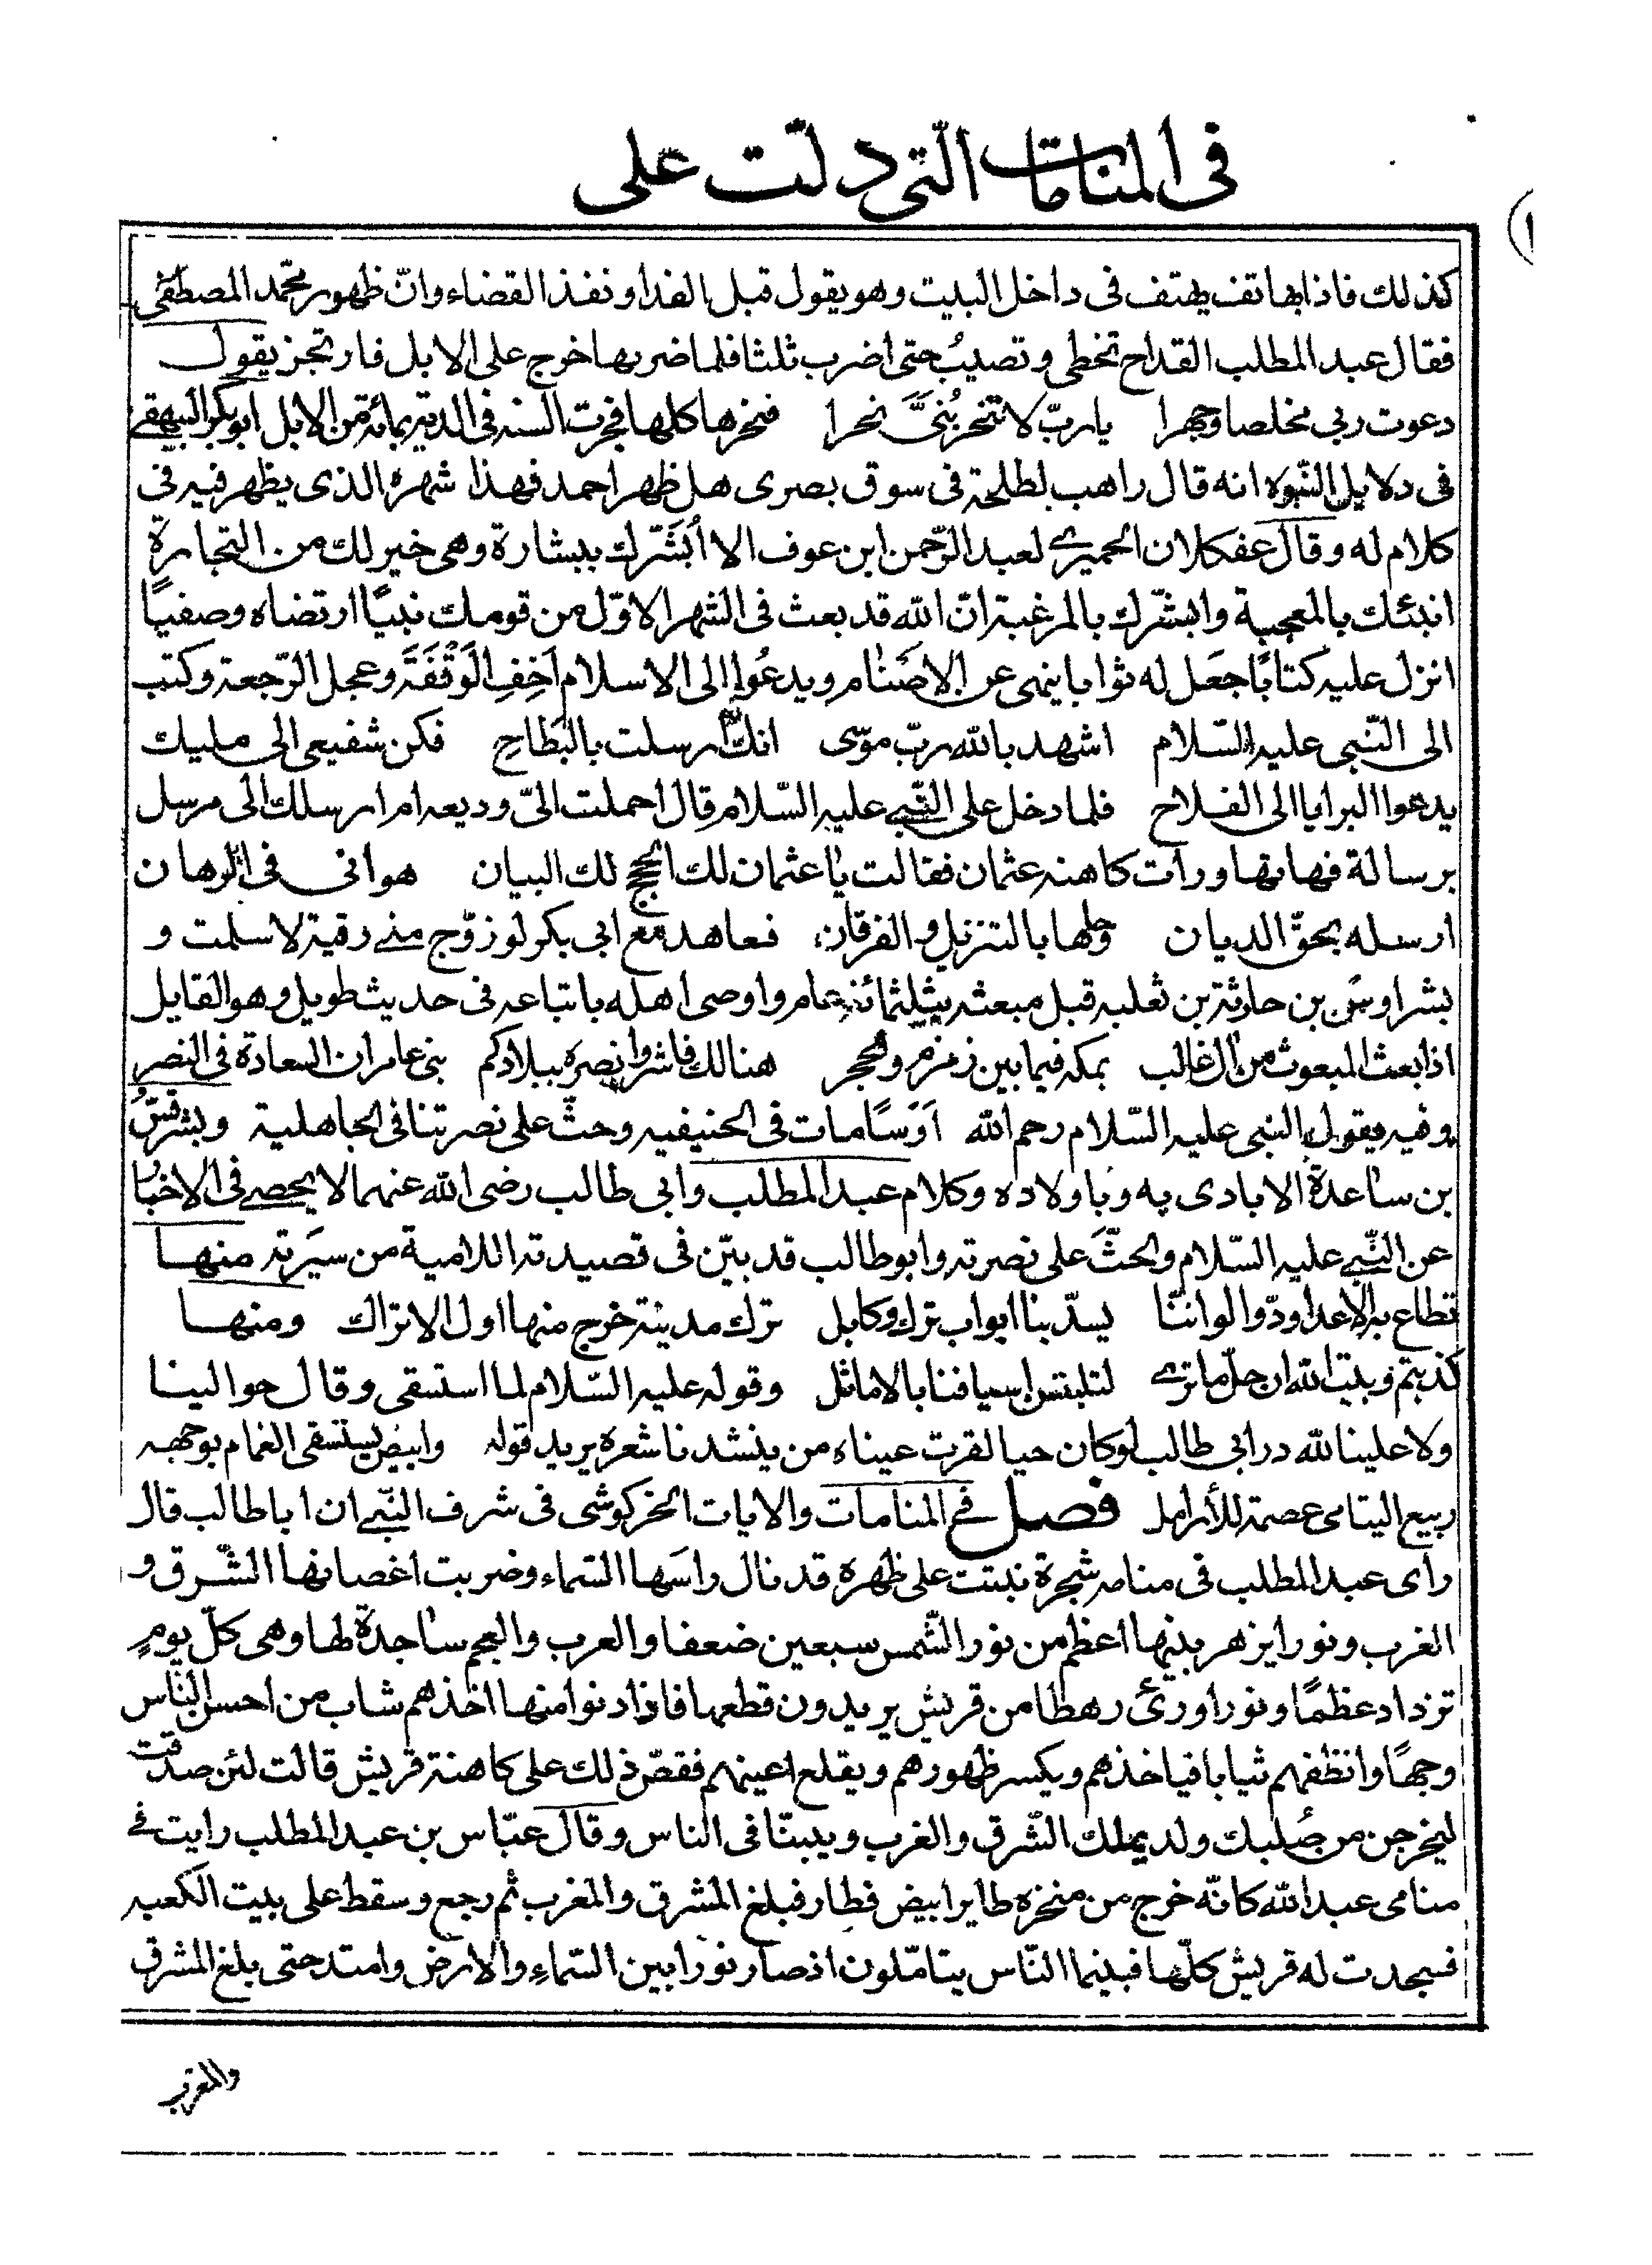 فى المنامات التى دلت على
كذلك فاذا بهاتف يهتف فى داخل البيت وهو يقول قبل الفدا ونفذ القضاء وانّ ظهور محمّد المصطفى
فقال عبد المطلب القداح تخطى وتصيبُ حتى اضرب ثلثا فلما ضربها خرج على الابل فارتجز يقول
دعوت ربى مخلصا وجهرا يا ربّ لا تنحر بُنَىَّ نحرا فنحرها كلها فجرت السنه فى الدية بمائة من الابل ابو بكر البيهقى
فى دلايل النّبوه انه قال راهب لطلحة فى سوق بصرى هل ظهر احمد فهذا شهره الذى يظهر فيه فى
كلام له وقال عفكلان الحميرى لعبد الرّحمن ابن عوف الا اُبَشّرك ببشارة وهى خير لك من التجارة
انبئك بالمعجبة وابشّرك بالمرغبة انّ الله قد بعث فى الشهر الاوّل من قومك نبيًّا ارتضاه وصفيًّا
انزل عليه كتابًا جعَل له ثوابا ينهى عن الاصَنام ويدعُوا الى الاسلام اَخِفِ الوَقْفَةَ وعجل الرّجعة وكتب
الى النّبى عليه السّلام اشهد بالله ربّ موسى انك ارسلت بالبَطاحِ فكن شفيعى الى مليك
يدعوا البرايا الى الفلاح فلما دخل على النّبى عليه السّلام قال احملت الىّ وديعه ام ارسلك الى مرسل
برسالة فهاتها ورات كاهنه عثمان فقالت يا عثمان لك الحجج لك البيان هو اتى فى البرهان
ارسله بحقّ الديان وجاها بالتنزيل والفرقان فعاهد مع ابى بكر لو زوّج منى رقية لاسلمت و
بشر اوس بن حارثة بن ثعلبه قبل مبعثه بثلثمائة عام واوصى اهله باتباعه فى حديث طويل وهو القايل
اذا بعث المبعوث من ال غالب بمكه فيما بين زمزم والحجر هنالك فاشروا نصره ببلادكم بنى عامر ان السعادة فى النصر
وفيه يقول النبى عليه السّلام رحم الله اَوْسًا مات فى الحنيفيه وحثّ على نصرتنا فى الجاهلية وبشر قسّ
بن ساعدة الايادى به وباولاده وكلام عبد المطلب وابى طالب رضى الله عنهما لا يحصى فى الاخبار
عن النّبى عليه السّلام والحثّ على نصرته وابو طالب قد بيّن فى قصيدته اللامية من سيرته منها
تطاع به الاعدا ودّوا لو اننّا يسدّ بنا ابواب ترك وكابل ترك مدينة خرج منها اول الاتراك ومنها
كذبتم وبيت الله ان جلّ ما نرى لتلتبسن اسيافنا بالاماثل وقوله عليه السّلام لما استسقى وقال حوالينا
ولا علينا لله در ابى طالب لو كان حيا لقرت عيناه من ينشدنا شعره يريد قوله وابيض يستسقى الغمام بوجهه
ربيع اليتامى عصمة للأرامل فصل فى المنامات والايات الخركوشى فى شرف النّبى ان ابا طالب قال
راى عبد المطلب فى منامه شجرة نبتت على ظهره قد نال راسَها السّماء وضربت اغصانها الشّرق و
الغرب ونورا يزهر بينها اعظم من نور الشّمس سبعين ضعفا والعرب والعجم ساجدة لها وهى كلّ يومٍ
تزداد عظمًا ونورا ورئ رهطا من قريش يريدون قطعها فاذا دنوا منها اخذهم شاب من احسن النّاس
وجهًا وانظفهم ثيابا فياخذهم ويكسر ظهورهم ويقلع اعينهم فقصّ ذلك على كاهنة قريش قالت لئن صدقت
ليخرجن من صُلبك ولد يملك الشّرق والغرب ويبنّا فى الناس وقال عبّاس بن عبد المطلب رايت فى
منامى عبد الله كانّه خرج من منخره طاير ابيض فطار فبلغ المشرق والمغرب ثم رجع وسقط على بيت الكعبه
فسجدت له قريش كلّها فبينما النّاس يتامّلون اذ صار نورا بين السّماءِ والارض وامتد حتى بلغ المشرق
والمغرب